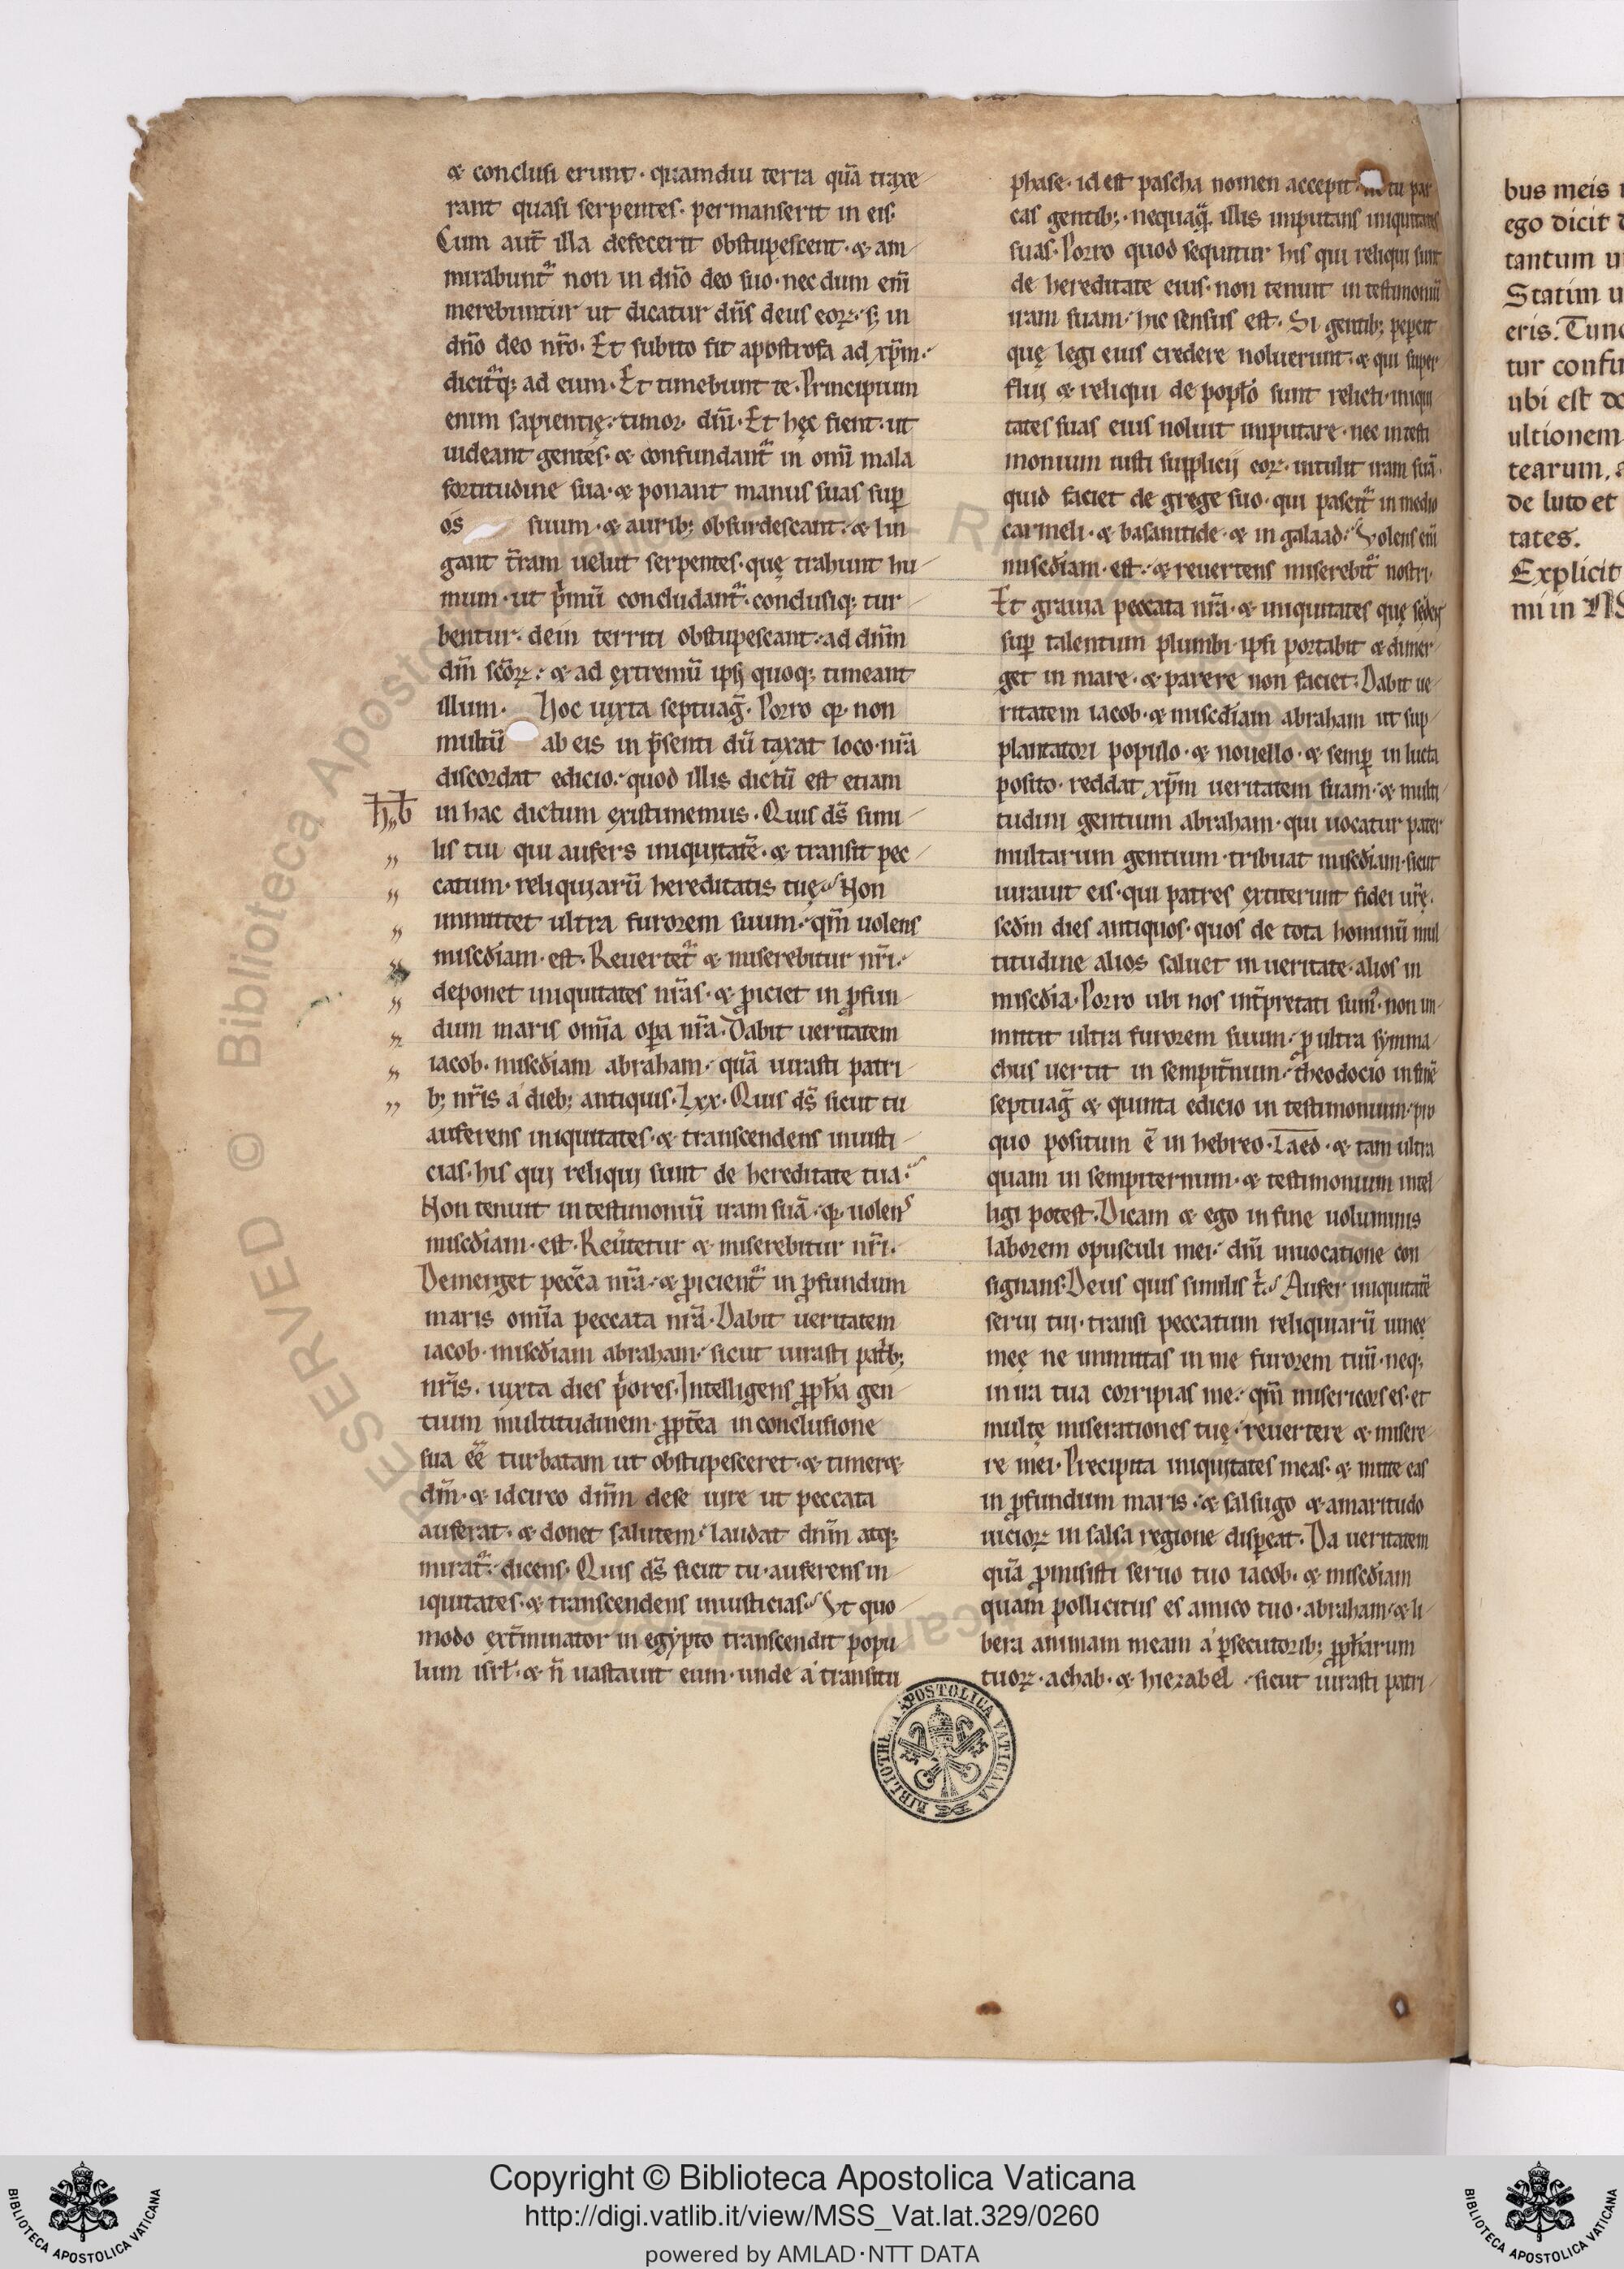 & conclusi erunt · quamdiu terra quā traxe-
rant quasi serpentes · permanserit in eis ·
Cum aut̄ illa defecerit obstupescent · & am-
mirabunt᷑ non in dn̄o deo suo · nec dum em̄
merebuntur ut dicatur dn̄s deus eoꝝ · s; in
dn̄o deo nr̄o · Et subito fit apostrofa ad xp̄m ·
dicit᷑q; ad eum · Et timebunt te · Principium
enim sapientię · timor dn̄i · Et hęc fient · ut
uideant gentes · & confundant᷑ in om̄i mala
fortitudine sua · & ponant manus suas sup̄
os suum · & aurib; obsurdescant · & lin
gant t̄ram uelut serpentes · quę trahunt hu-
mum · ut p̄mū concludant᷑ · conclusiq; tur-
bentur · dein territi obstupescant · ad dn̄m
dm̄ sc̄oꝝ · & ad extremū ipsi quoq; timeant
illum · Hoc iuxta septuag̅ · Porro qꝛ non
multū ab eis in p̄senti dū taxat loco · nr̄a
discordat edicio · quod illis dictū est etiam
h̄b̄ in hac dictum existimemus · Quis ds̄ simi-
„ lis tui qui aufers iniquitatē · & transit pec-
„ catum · reliquiarū hereditatis tuę · Non
„ immittet ultra furorem suum · qm̄ uolens
„ misc̄diam · est · Reuertet᷑ & miserebitur nr̄i ·
„ deponet iniquitates nr̄as · & ꝓiciet in ꝓfun-
„ dum maris om̄ia opa nr̄a · Dabit ueritatem
„ iacob · misc̄diam abraham · quā iurasti patri-
„ b; nr̄is a dieb; antiquis · Lxx · Quis ds̄ sicut tu
auferens iniquitates · & transcendens iniusti-
cias · his qui reliqui sunt de hereditate tua ·
Non tenuit in testimoniū iram suā · qꝛ uolens
misc̄diam · est · Reūtetur & miserebitur nr̄i ·
Demerget pecc̄a nr̄a · & ꝓicient᷑ in ꝓfundum
maris om̄ia peccata nr̄a · Dabit ueritatem
iacob · misc̄diam abraham · sicut iurasti patb;
nr̄is · iuxta dies p̄ores · Intelligens ꝓph̄a gen-
tium multitudinem · ꝓpt̄ea in conclusione
sua ēē turbatam ut obstupesceret · & timer&
dm̄ · & idcirco dn̄m dese iire ut peccata
auferat · & donet salutem · laudat dn̄m atq;
mirat᷑ · dicens · Quis ds̄ sicut tu · auferens in-
iquitates · & transcendens iniusticias · Vt quo
modo ext̄minator in egypto transcendit popu-
lum isrl̄ · & n̄ uastauit eum · unde a transitu
phase · id est pascha nomen accepit · tu par
cas gentib; · nequaq̄ illis imputans iniquitates
suas · Porro quod sequitur his qui reliqui sunt
de hereditate eius · non tenuit in testimoniū
iram suam · hic sensus est · Si gentib; pepercit
quę legi eius credere noluerunt · & qui super-
flui & reliqui de popl̄o sunt relicti · iniqui
tates suas eius noluit imputare · nec in testi
monium iusti supplicij eoꝝ · intulit iram suā ·
quid faciet de grege suo · qui pascit᷑ in medio
carmeli · & basanitide · & in galaad · Volens em̄
misc̄diam · est · & reuertens miserebit᷑ nostri ·
Et grauia peccata nr̄a · & iniquitates quę sedens
sup̄ talentum plumbi · ipsi portabit & dimer-
get in mare · & parere non faciet · Dabit ue-
ritatem iacob · & misc̄diam abraham ut sup-
plantatori populo · & nouello · & semp̄ in lucta
posito · reddat xp̄m ueritatem suam · & multi-
tudini gentium abraham · qui uocatur pater
multarum gentium · tribuat misc̄diam · sicut
iurauit eis · qui patres extiterunt fidei ur̄ę ·
scdm dies antiquos · quos de tota hominū mul-
titudine alios saluet in ueritate · alios in
misc̄dia · Porro ubi nos int̄pretati sum᷒ · non im-
mittit ultra furorem suum · ꝓ ultra symma-
chus uertit in sempit̄num · theodocio in finē
septuag̅ & quinta edicio in testimonium · pro
quo positum ē in hebreo · Laed · & tam ultra
quam in sempiternum · & testimonium intel-
ligi potest · Dicam & ego in fine uoluminis
laborem opusculi mei · dn̄i inuocatione con-
signans · Deus quis similis t̄ · Aufer iniquitatē
serui tui · transi peccatum reliquiarū uineę
meę ne immittas in me furorem tuū · neq;
in ira tua corripias me · qm̄ misericors es · et
multę miserationes tuę · reuertere & misere-
re mei · Precipita iniquitates meas · & mitte eas
in ꝓfundum maris · & salsugo & amaritudo
uicioꝝ in salsa regione disp̄eat · Da ueritatem
quā ꝓmisisti seruo tuo iacob · & misc̄diam
quam pollicitus es amico tuo · abraham · & li-
bera animam meam a p̄secutorib; ꝓph̄arum
tuoꝝ · achab · & hiezabel · sicut iurasti patri-
bus meis
ego dicit
tantum
Statim
eris. Tunc
tur
ubi est
ultionem
tearum.
de luto et
tates.
Explicit
mi in
BIBLIOTHECA APOSTOLICA VATICANA
RESERVED © Biblioteca Apostolica Vaticana
Copyright © Biblioteca Apostolica Vaticana
http://digi.vatlib.it/view/MSS_Vat.lat.329/0260
powered by AMLAD·NTT DATA
BIBLIOTECA APOSTOLICA VATICANA
BIBLIOTECA APOSTOLICA VATICANA